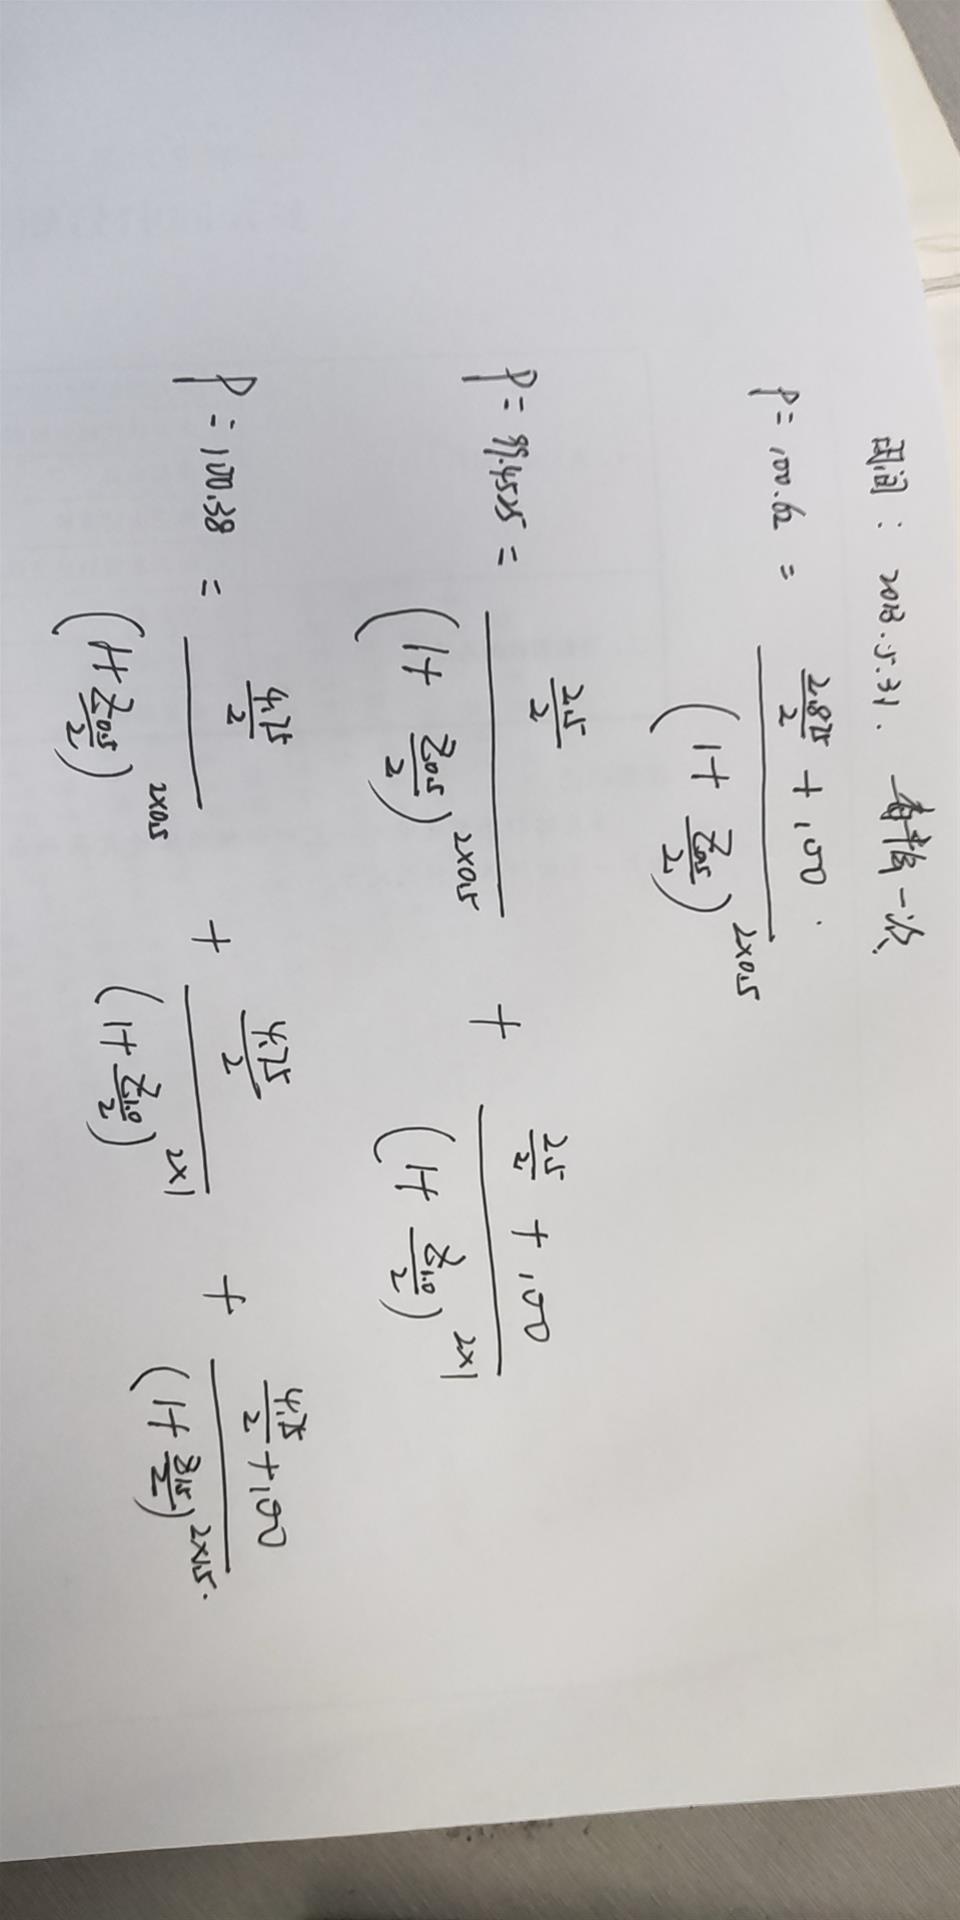 时间: 2018.5.31. 每半年一次
P = 100.62 = \frac{\frac{2.875}{2} + 100}{(1 + \frac{Z_{0.5}}{2})^{2×0.5}}
P = 99.4525 = \frac{\frac{2.5}{2}}{(1 + \frac{Z_{0.5}}{2})^{2×0.5}} + \frac{\frac{2.5}{2} + 100}{(1 + \frac{Z_{1.0}}{2})^{2×1}}
P = 100.38 = \frac{\frac{4.25}{2}}{(1 + \frac{Z_{0.5}}{2})^{2×0.5}} + \frac{\frac{4.25}{2}}{(1 + \frac{Z_{1.0}}{2})^{2×1}} + \frac{\frac{4.25}{2} + 100}{(1 + \frac{Z_{1.5}}{2})^{2×1.5}}